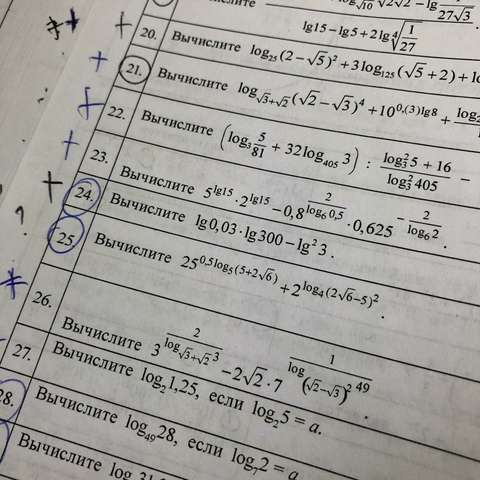 $\sqrt{10}$ $\sqrt{2\sqrt{2}} - \lg\frac{1}{27\sqrt{3}}$
$\lg 15 - \lg 5 + 2\lg\sqrt[4]{\frac{1}{27}}$
20. Вычислите $\log_{25}(2-\sqrt{5})^2 + 3\log_{125}(\sqrt{5}+2) +$
21. Вычислите $\log_{\sqrt{3}+\sqrt{2}}(\sqrt{2}-\sqrt{3})^4 + 10^{0,(3)\lg 8} +$
22. Вычислите $\left(\log_3\frac{5}{81} + 32\log_{405}3\right) : \frac{\log_3^2 5 + 16}{\log_3^2 405} -$
23. Вычислите $5^{\lg 15} \cdot 2^{\lg 15} - 0,8^{\frac{2}{\log_6 0,5}} \cdot 0,625^{-\frac{2}{\log_6 2}}.$
24. Вычислите $\lg 0,03 \cdot \lg 300 - \lg^2 3.$
25. Вычислите $25^{0,5\log_5(5+2\sqrt{6})} + 2^{\log_4(2\sqrt{6}-5)^2}.$
26. Вычислите $3^{\frac{2}{\log_{\sqrt{3}+\sqrt{2}}3}} - 2\sqrt{2} \cdot 7^{\frac{1}{\log_{(\sqrt{2}-\sqrt{3})^2}49}}.$
27. Вычислите $\log_2 1,25$, если $\log_2 5 = a.$
28. Вычислите $\log_{49} 28$, если $\log_7 2 = a$
Вычислите log